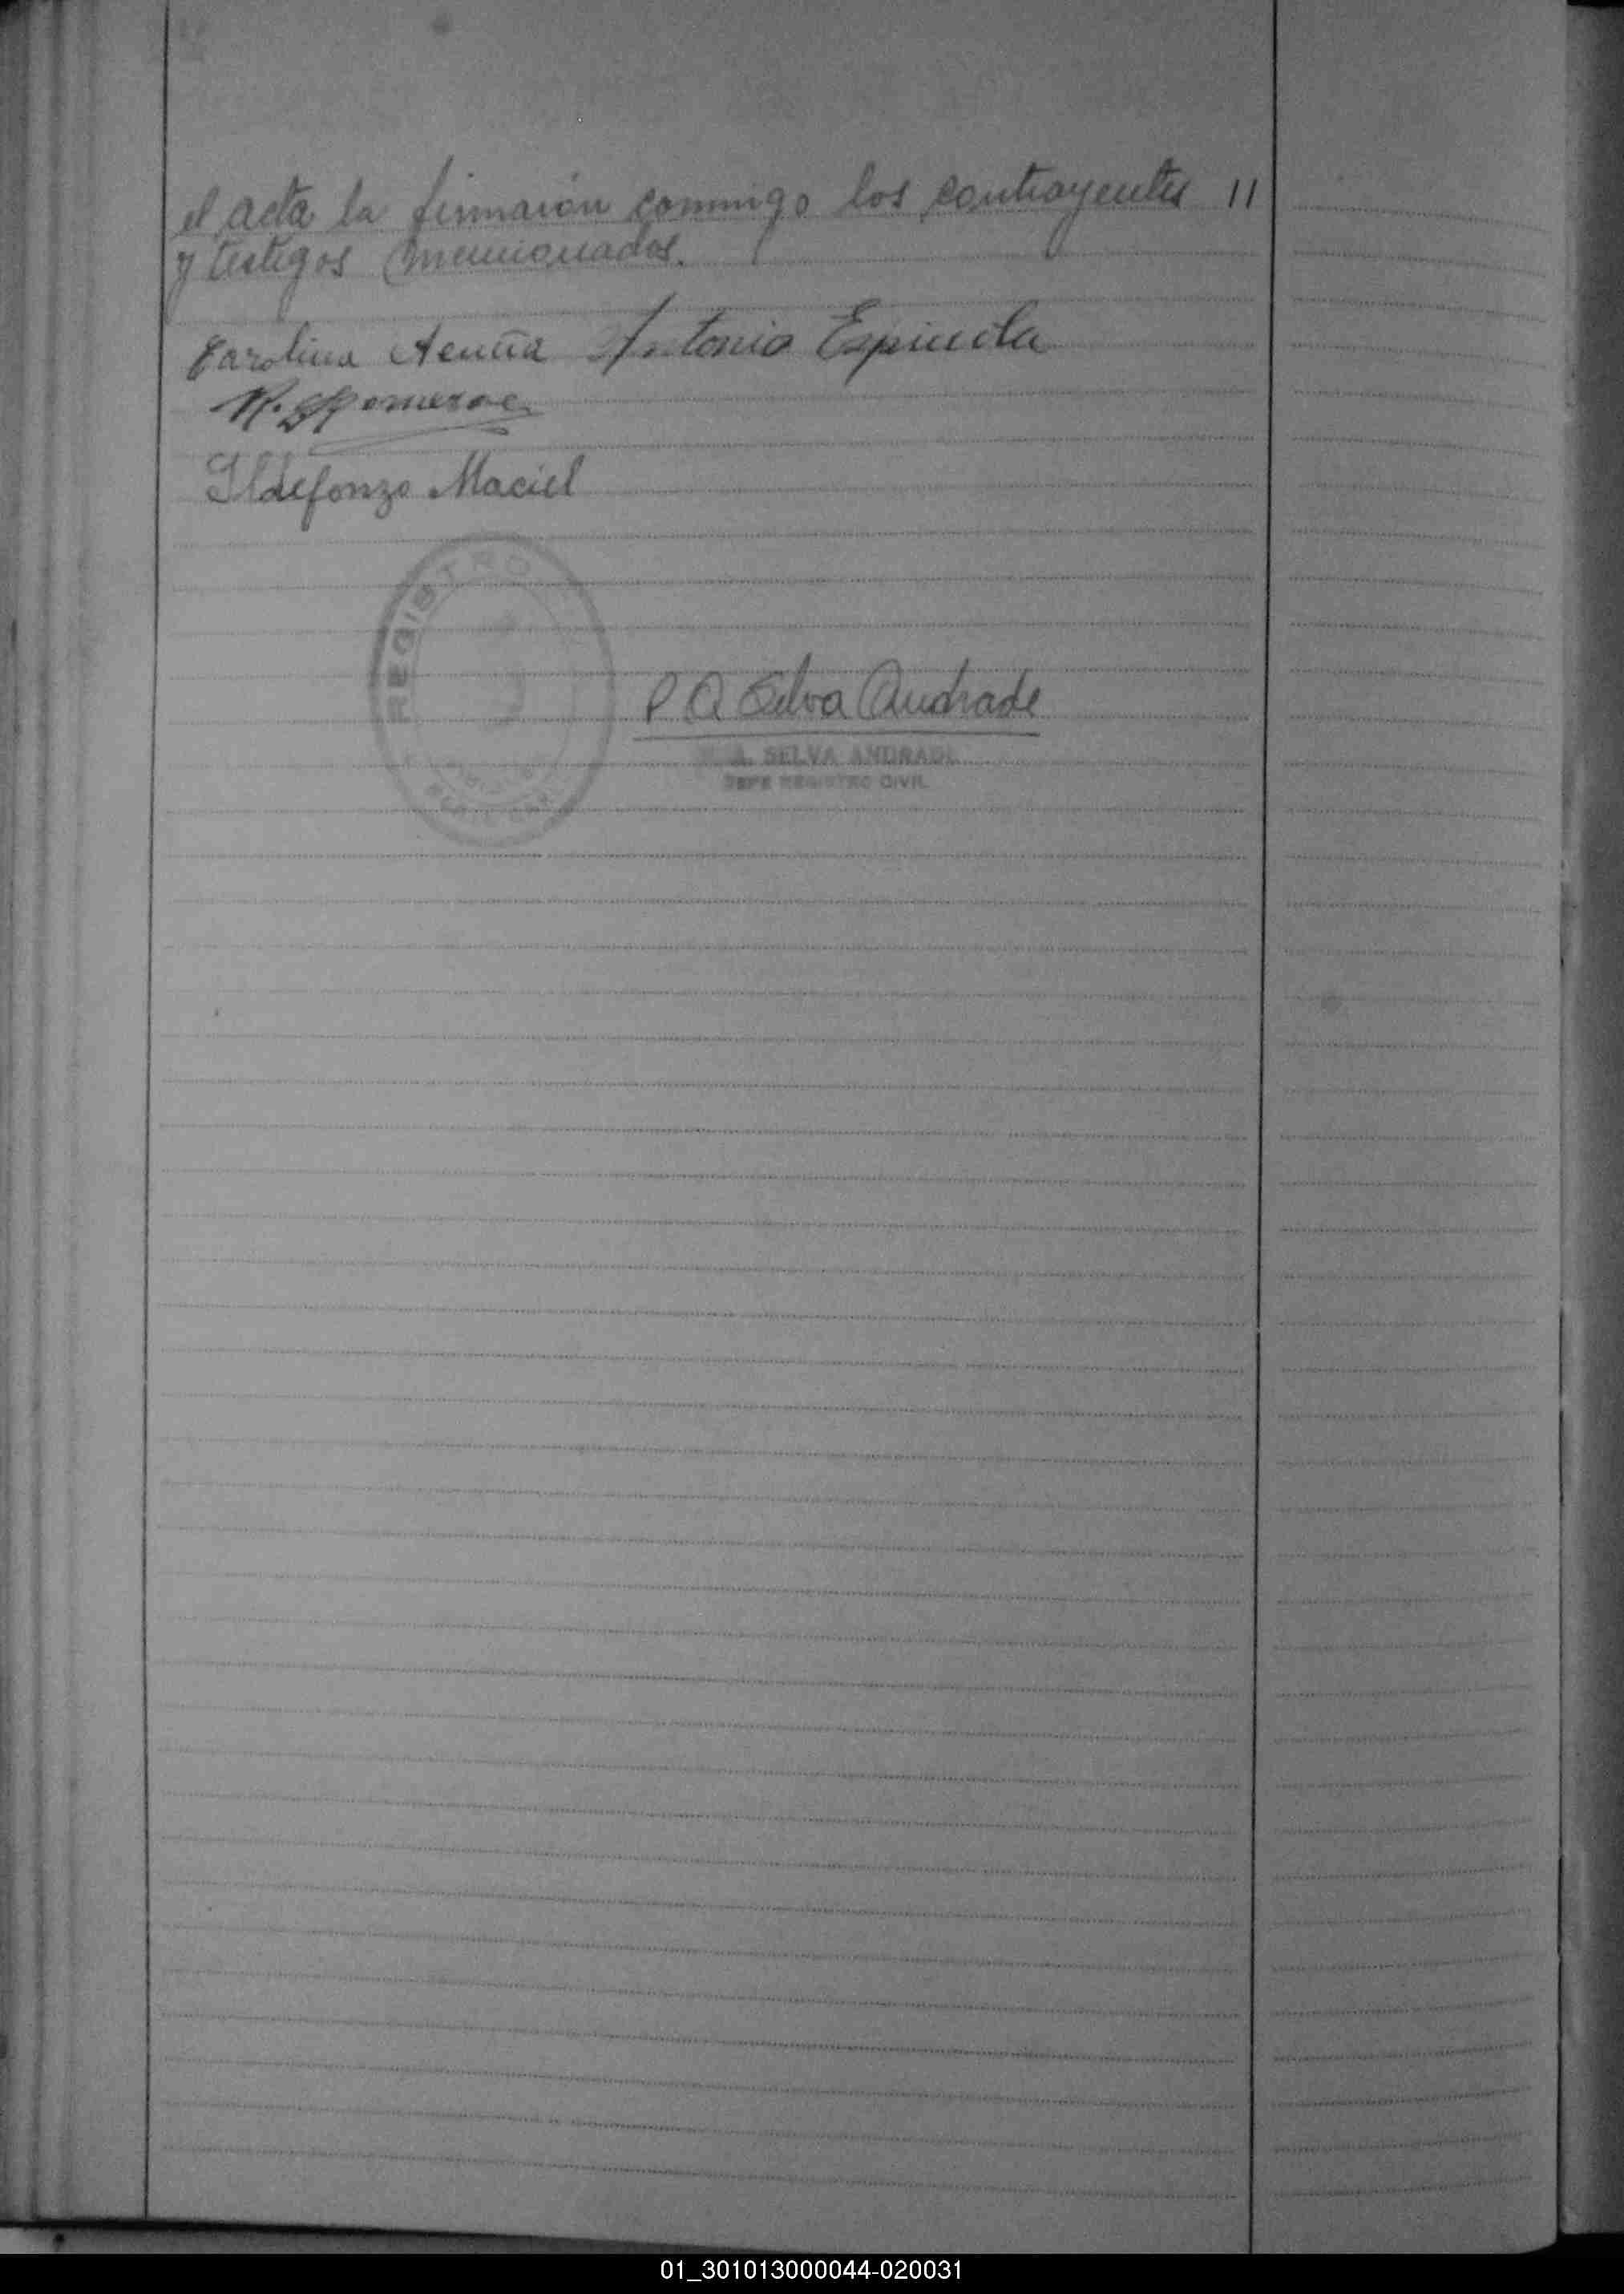 el acta la firmaron conmigo los contrayentes 11
y testigos mencionados.
Carolina Acuña Antonio Espinola
R. Romero
Ildefonzo Maciel
REGISTRO
P A Selva Andrade
A. SELVA ANDRADE
JEFE REGISTRO CIVIL
01_301013000044-020031